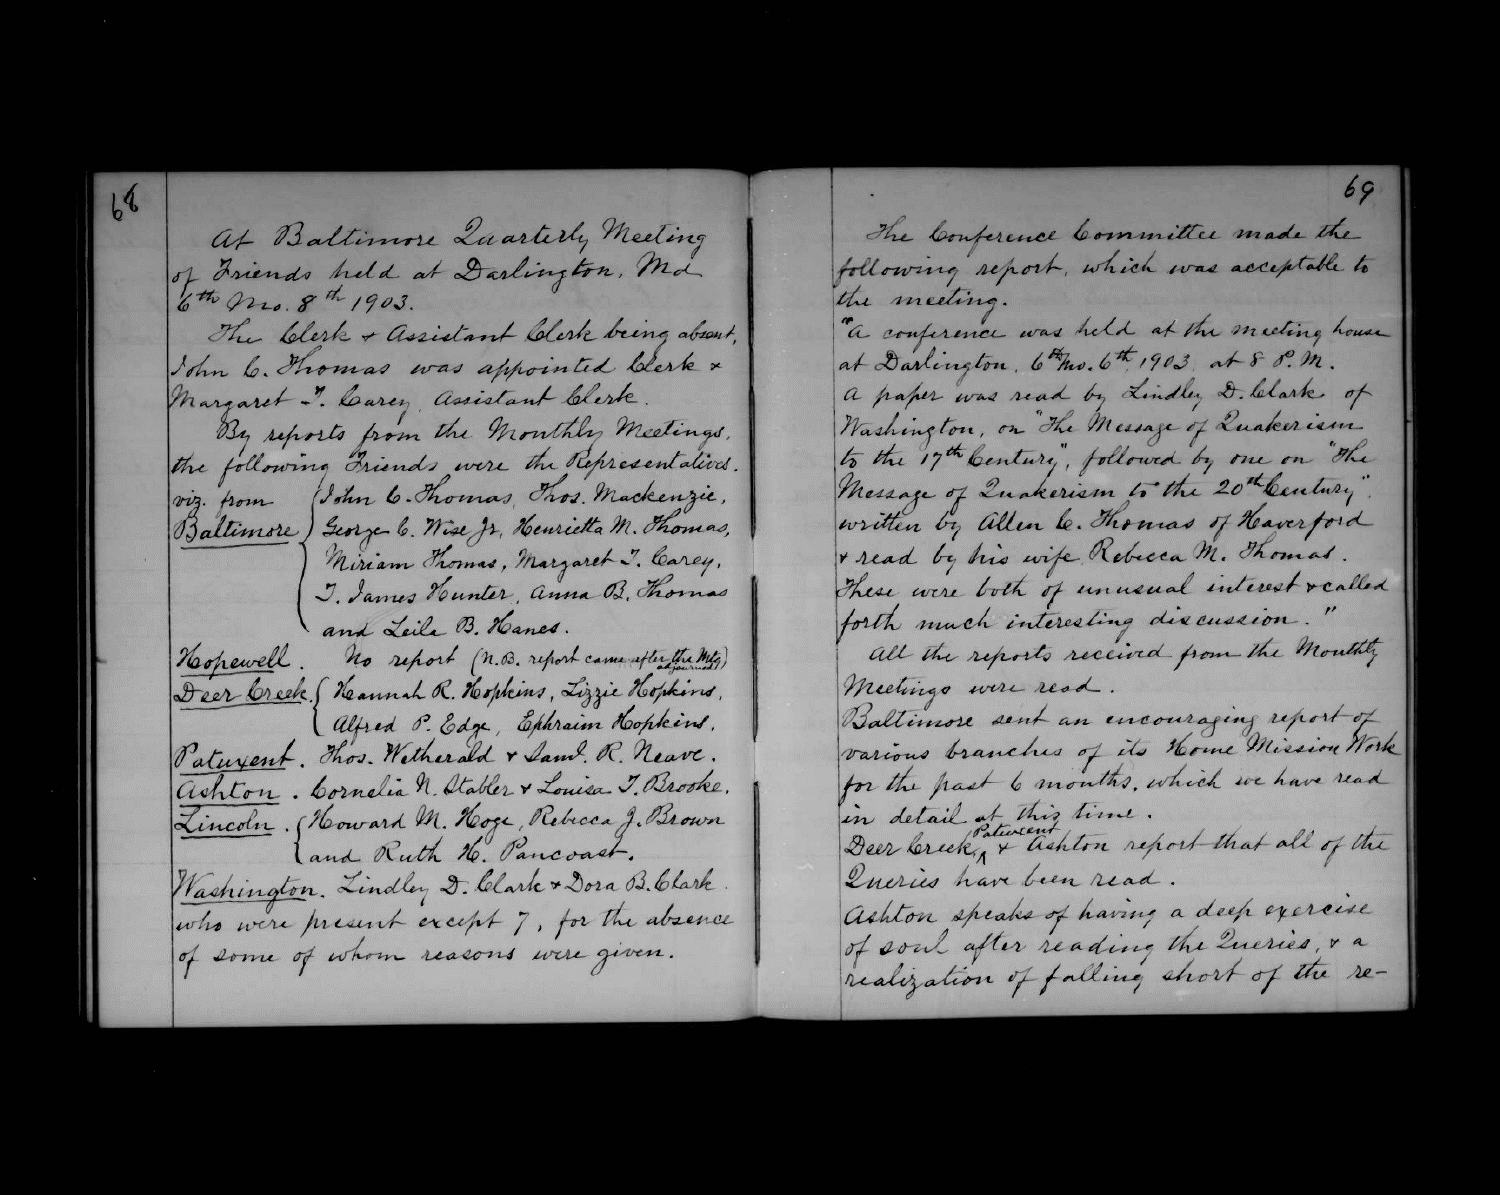 68
At Baltimore Quarterly Meeting
of Friends held at Darlington, Md
6th Mo. 8th 1903.
The Clerk & Assistant Clerk being absent,
John C. Thomas was appointed Clerk &
Margaret T. Carey, Assistant Clerk.
By reports from the Monthly Meetings,
the following Friends were the Representatives.
viz. from { John C. Thomas, Thos. Mackenzie,
Baltimore { George C. Wise Jr, Henrietta M. Thomas,
Miriam Thomas, Margaret T. Carey,
T. James Hunter, Anna B. Thomas
and Leila B. Hanes.
Hopewell. No report (N.B. report came after the Mtg adjourned)
Deer Creek. { Hannah R. Hopkins, Lizzie Hopkins,
Alfred P. Edge, Ephraim Hopkins.
Patuxent. Thos. Wetherald & Saml. R. Neave.
Ashton. Cornelia N. Stabler & Louisa T. Brooke.
Lincoln. { Howard M. Hoge, Rebecca J. Brown
and Ruth H. Pancoast.
Washington. Lindley D. Clark & Dora B. Clark.
who were present except 7, for the absence
of some of whom reasons were given.
69
The Conference Committee made the
following report, which was acceptable to
the meeting.
"A conference was held at the meeting house
at Darlington, 6th Mo. 6th, 1903, at 8 P.M.
A paper was read by Lindley D. Clark of
Washington, on "The Message of Quakerism
to the 17th Century", followed by one on "The
Message of Quakerism to the 20th Century".
written by Allen C. Thomas of Haverford
& read by his wife Rebecca M. Thomas.
These were both of unusual interest & called
forth much interesting discussion."
All the reports received from the Monthly
Meetings were read.
Baltimore sent an encouraging report of
various branches of its Home Mission Work
for the past 6 months, which we have read
in detail at this time.
Deer Creek, Patuxent & Ashton report that all of the
Queries have been read.
Ashton speaks of having a deep exercise
of soul after reading the Queries, & a
realization of falling short of the re-